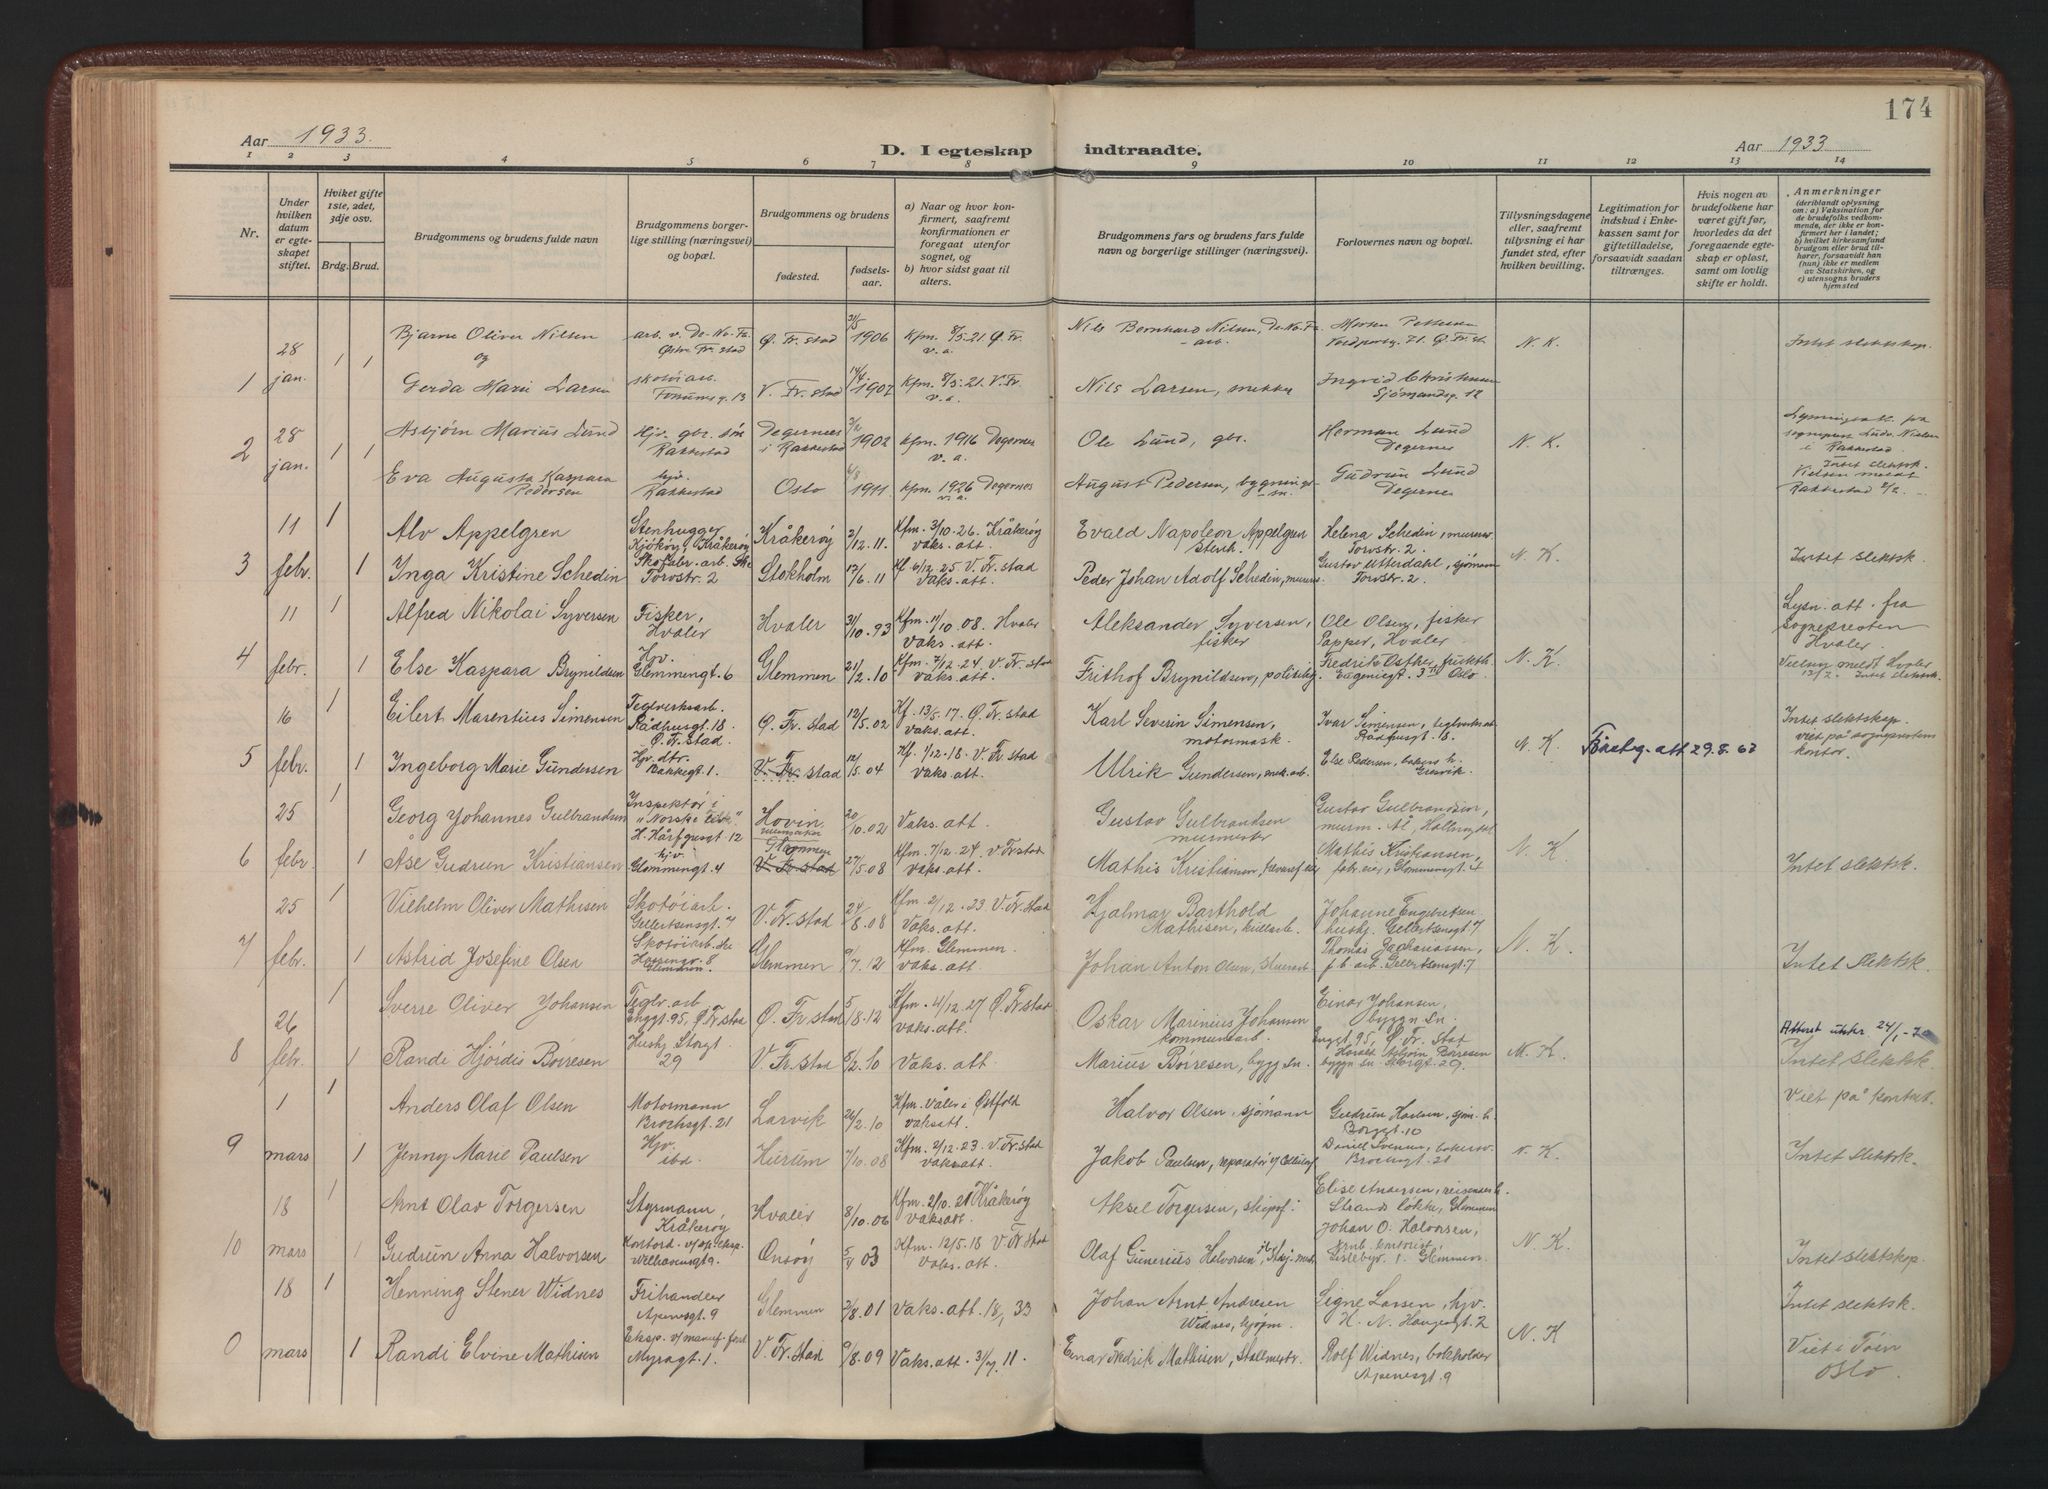 174
Aar 1933.
D. I egteskap indtraadte.
Aar 1933
1 2 3 4 5 6 7 8 9 10 11 12 13 14
Nr.
Under hvilken datum er egteskapet stiftet.
Hviket gifte 1ste, 2det, 3dje osv.
Brdg. Brud.
Brudgommens og brudens fulde navn
Brudgommens borgerlige stilling (næringsvei) og bopæl.
Brudgommens og brudens
fødested.
fødselsaar.
a) Naar og hvor konfirmert, saafremt konfirmationen er foregaat utenfor sognet, og
b) hvor sidst gaat til alters.
Brudgommens fars og brudens fars fulde navn og borgerlige stillinger (næringsvei).
Forlovernes navn og bopæl.
Tillysningsdagene eller, saafremt tillysning ei har fundet sted, efter hvilken bevilling.
Legitimation for indskud i Enkekassen samt for giftetilladelse, forsaavidt saadan tiltrænges.
Hvis nogen av brudefolkene har været gift før, hvorledes da det foregaaende egteskap er opløst, samt om lovlig skifte er holdt.
Anmerkninger (deriblandt oplysning om: a) Vaksination for de brudefolks vedkommende, der ikke er konfirmert her i landet; b) hvilket kirkesamfund brudgom eller brud tilhører, forsaavidt han (hun) ikke er medlem av Statskirken, og c) utensogns bruders hjemsted
1 28 jan. 1 1
Bjarne Oliver Nilsen arb. v. De-No-Fa Østre Fr.stad Ø. Fr.stad 1906 Kfm. 8/5.21 Ø. Fr. v.a. Nils Bernhard Nilsen, De-No-Fa arb. Ø. Fr.st. N. K. Intet slektskap.
og
Gerda Marie Larsen skotøiarb. 13 V. Fr.stad 14/4 1907 Kfm. 8/5.21. V. Fr. v.a. Nils Larsen, Ingrid Christensen Sjømandsg. 12
2 28 jan. 1 1
Asbjørn Marius Lund Hjv. gbr. søn Rakkestad Degernes i Rakkestad 1902 kfm. 1916 Degernes v.a. Ole Lund, gbr. Herman Lund Degernes N. K. Lysningsatt. fra sogneprest Ludv. Nielsen i Rakkestad
Eva Augusta Kaspara Pedersen hjv. Rakkestad Oslo 6/8 1911 kfm. 1926 Degernes v.a. August Pedersen, bygningssn. Gudrun Lund Degernes Intet slektsk. Vielsen meldt Rakkestad 2/2.
3 11 febr. 1 1
Alv Appelgren Stenhugger Kjøkøy, Kråkerøy Kråkerøy 2/12.11. Kfm. 3/10.26. Kråkerøy vaks. att. Evald Napoleon Appelgren stenh. Helena Schedin, murer Torvstr. 2. N. K.
Inga Kristine Schedin Torvstr. 2 Stokholm 17/6.11 Kf. 6/12.25 V. Fr.stad Vaks. att. Peder Johan Adolf Schedin, murer. Gustav Utterdahl, sjømann Torvstr. 2. Intet slektsk.
4 11 febr. 1 1
Alfred Nikolai Syversen Fisker, Hvaler Hvaler 31/10.93 Kfm. 11/10 08. Hvaler Vaks. att. Aleksander Syversen, fisker Ole Olsen, fisker Papper, Hvaler N. K. Lysn. att. fra Sognepresten Hvaler.
Else Kaspara Brynildsen Hjv. Glemmengt. 6 Glemmen 21/2.10 Kfm. 7/12.24. V. Fr.stad Vaks. att. Frithof Brynildsen, Oslo. Vielsen meldt Hvaler 13/2. Intet slektsk.
5 16 febr. 1 1
Eilert Marentius Simensen Teglverksarb. Rådhusgt. 18. Ø. Fr.stad. Ø. Fr.stad 12/5.02 Kf. 13/5.17. Ø. Fr.stad vaks. att. Karl Severin Simensen, motormask. Ivar Simensen, teglverksarb Rådhusgt. 18. N. K. 29.8.62 Intet slektskap. viet på sogneprestens kontor.
Ingeborg Marie Gundersen Hjv. dtr. Bakkegt. 1. V. Fr.stad 12/5.04 Kf. 1/12.18. V. Fr.stad Vaks. att. Ulrik Gundersen, mek. arb. Else Pedersen,
6 25 febr. 1 1
Georg Johannes Gulbrandsen Inspektør i "Norske Liv" H. Hårfagresgt 12 Hovin Ullensaker 20/10.02 Vaks. att. Gustav Gulbrandsen murmester Gustav Gulbrandsen, murm. Ål, Hallingdal N. K.
Åse Gudrun Kristiansen hjv. Glemmengt. 4 Glemmen V. Fr.stad 27/5.08 Kfm. 7/12.24. V. Fr.stad Vaks. att. Mathis Kristiansen, Mathis Kristiansen, fabr. eier, Glemmengt. 4 Intet slektsk.
7 25 febr. 1 1
Vilhelm Oliver Mathisen Skotøiarb. Gellertsensgt 7 V. Fr.stad 24/8.08 Kfm. 2/12.23 V. Fr.stad Vaks. att. Hjalmar Barthold Mathisen, kullarb. Johanne Engebretsen hushj. Gellertsensgt 7 N. K.
Astrid Josefine Olsen Skotøiarb.ske 8 Glemmen Glemmen 9/7.12 Kfm. Glemmen. Vaks. att. Johan Anton Olsen, Thomas Zachariassen, f.b. arb. Gellertsensgt. 7 Intet slektsk.
8 26 febr. 1 1
Sverre Oliver Johansen Teglv. arb Enggt. 95, Ø. Fr.stad Ø. Fr.stad 5/8.12 Kfm. 4/12.27 Ø. Fr.stad vaks. att. Oskar Marinius Johansen kommunearb. Einar Johansen, byggn. sn. Enggt 95, Ø. Fr. Stad Attest utskr. 24/1-7
Randi Hjørdis Børresen Hushj. Storgt. 29 V. Fr.stad 8/2.10 Vaks. att. Marius Børresen, bygg sn. Asbjørn Børresen byggn sn. Storgt. 29. N. K. Intet slektsk.
9 1 mars 1 1
Anders Olaf Olsen Motormann Brochsgt. 21 Larvik 26/2.10 Kfm. Våler i Østfold vaksatt. Halvor Olsen, sjømann Gudrun Borggt. 10 Viet på kontoret.
Jenny Marie Paulsen Hjv. ibd. Hurum 7/10.08 Kfm. 2/12.23. V. Fr.stad Vaksatt. Jakob Paulsen, reparatør v/ Brochsgt. 21 N. K. Intet slektsk.
10 18 mars 1 1
Arnt Olav Torgersen Styrmann, Kråkerøy Hvaler 8/10.06 Kfm. 2/10.21 Kråkerøy Vaksatt. Aksel Torgersen, skipsf. Elise Andersen, Strands løkke, Glemmen
Gudrun Anna Halvorsen Wilhelmsgt 9. Onsøy 5/4 03 Kfm. 12/5.18 V. Fr.stad Vaks. att. Olaf Gunerius Halvorsen, Johan O. Halvorsen, Lislebygt. 1. Glemmen. N. K. Intet slektskap.
0 18 mars 1 1
Henning Stener Widnes Frihandler Apenesgt. 9 Glemmen 2/8.01 Vaks. att. 18/, 33 Johan Arnt Andresen Widnes, sjøm. Signe Larsen, hjv. H. N. Haugesgt. 2 N. K Intet slektsk.
Randi Elvine Mathisen Eksp. v/ manuf. forr. Myragt. 1. V. Fr.stad 9/8.09 Vaks. att. 3/7. 11. Einar Fredrik Mathisen, Rolf Widnes, bokholder Apenesgt. 9 Viet i Tøien Oslo.